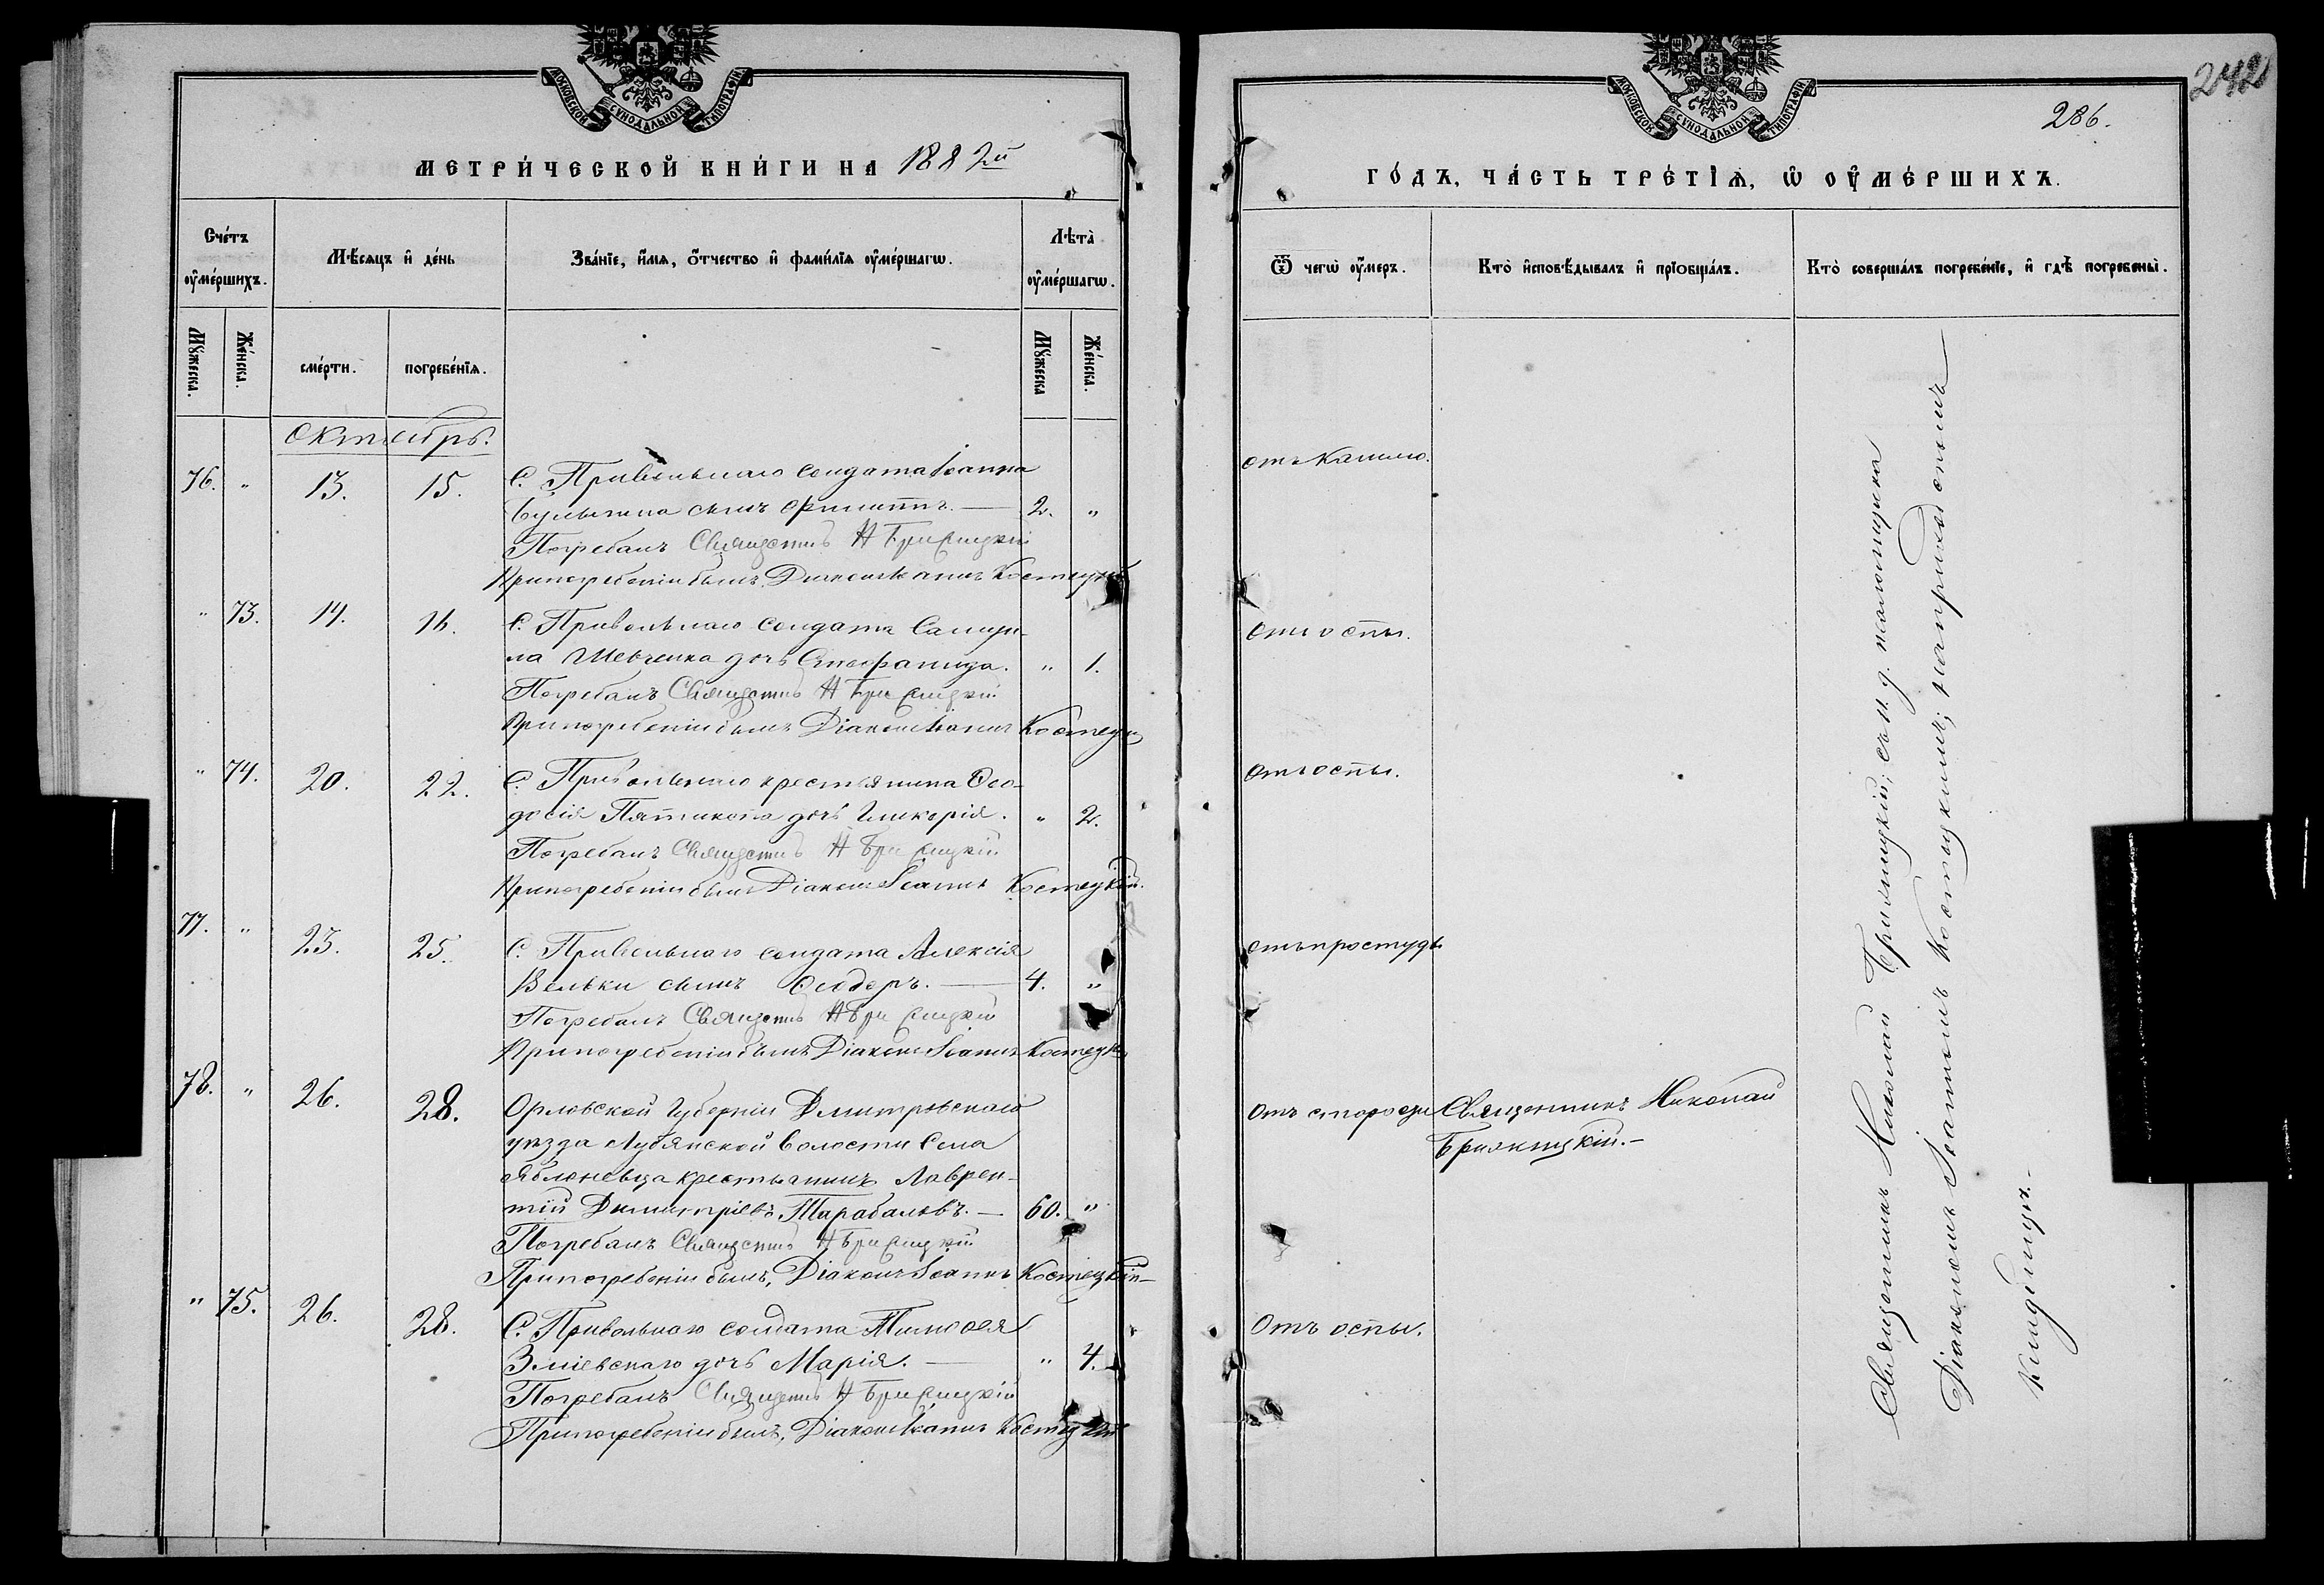 МОСКОВСКОЙ СѴНОДАЛЬНОЙ ТИПОГРАФІИ
МЕТРИ́ЧЕСКОЙ КНИ́ГИ НА 1882й
Сче́тъ оу҆ме́ршихъ.
Мѣ́сяцъ и҆ де́нь
Зва́нїе, и҆́мя, ѻ҆́тчество и҆ фами́лїя оу҆ме́ршагѡ.
Лѣ́та оу҆ме́ршагѡ.
Мꙋ́жеска.
Же́нска.
сме́рти.
погребе́нїѧ.
Мꙋ́жеска
Же́нска.
Октябрь.
76. " 13. 15. С. Привольнаго солдата Іоанна
сынъ Филиппъ. — 2. "
Погребалъ Священникъ Н Бриллицкій
При погребеніи былъ Діаконъ Іоаннъ Костецкій
" 73. 14. 16. С. Привольнаго солдата Самуи-
ла Шевченка дочь Стефанида. " 1.
Погребалъ Священникъ Н Бриллицкій
При погребеніи былъ Діаконъ Іоаннъ Костецкій
" 74. 20. 22. С. Привольнаго крестьянина Ѳео-
досія Пятикопа дочь Гликерія. " 2.
Погребалъ Священникъ Н Бриллицкій
При погребеніи былъ Діаконъ Іоаннъ Костецкій.
77. " 23. 25. С. Привольнаго солдата Алексія
Вельки сынъ Ѳеодоръ. — 4. "
Погребалъ Священникъ Н Бриллицкій
При погребеніи былъ Діаконъ Іоаннъ Костецкій
78. " 26. 28. Орловской Губерніи Дмитровскаго
уѣзда Лубянской волости Села
Яблоневца крестьянинъ Лаврен-
тій Димитріевъ Тарабановъ. — 60. "
Погребалъ Священникъ Н Бриллицкій
При погребеніи былъ, Діаконъ Іоаннъ Костецкій
" 75. 26. 28. С. Привольнаго солдата Тимоѳея
Зміевскаго дочь Марія. — " 4.
Погребалъ Священникъ Н Бриллицкій
При погребеніи былъ, Діаконъ Іоаннъ Костецкій
242
286.
МОСКОВСКОЙ СѴНОДАЛЬНОЙ ТИПОГРАФІИ
ГО́ДЪ, ЧА́СТЬ ТРЕ́ТЇѦ, Ѡ҆ ОУ҆МЕ́РШИХЪ.
Ѿ чегѡ̀ оу҆́меръ.
Кто̀ и҆сповѣ́дывалъ и҆ прїобща́лъ.
Кто̀ соверша́лъ погребе́нїе, и҆ гдѣ̀ погребены̀.
отъ кашлю.
отъ оспы.
отъ оспы.
отъ простуды
отъ старости Священникъ Николай
Бриллицкій.—
Отъ оспы.
Священникъ Николай Бриллицкій; съ и. д. псаломщика
Діакономъ Іоанномъ Костецкимъ; на приходскомъ
кладбищѣ.—